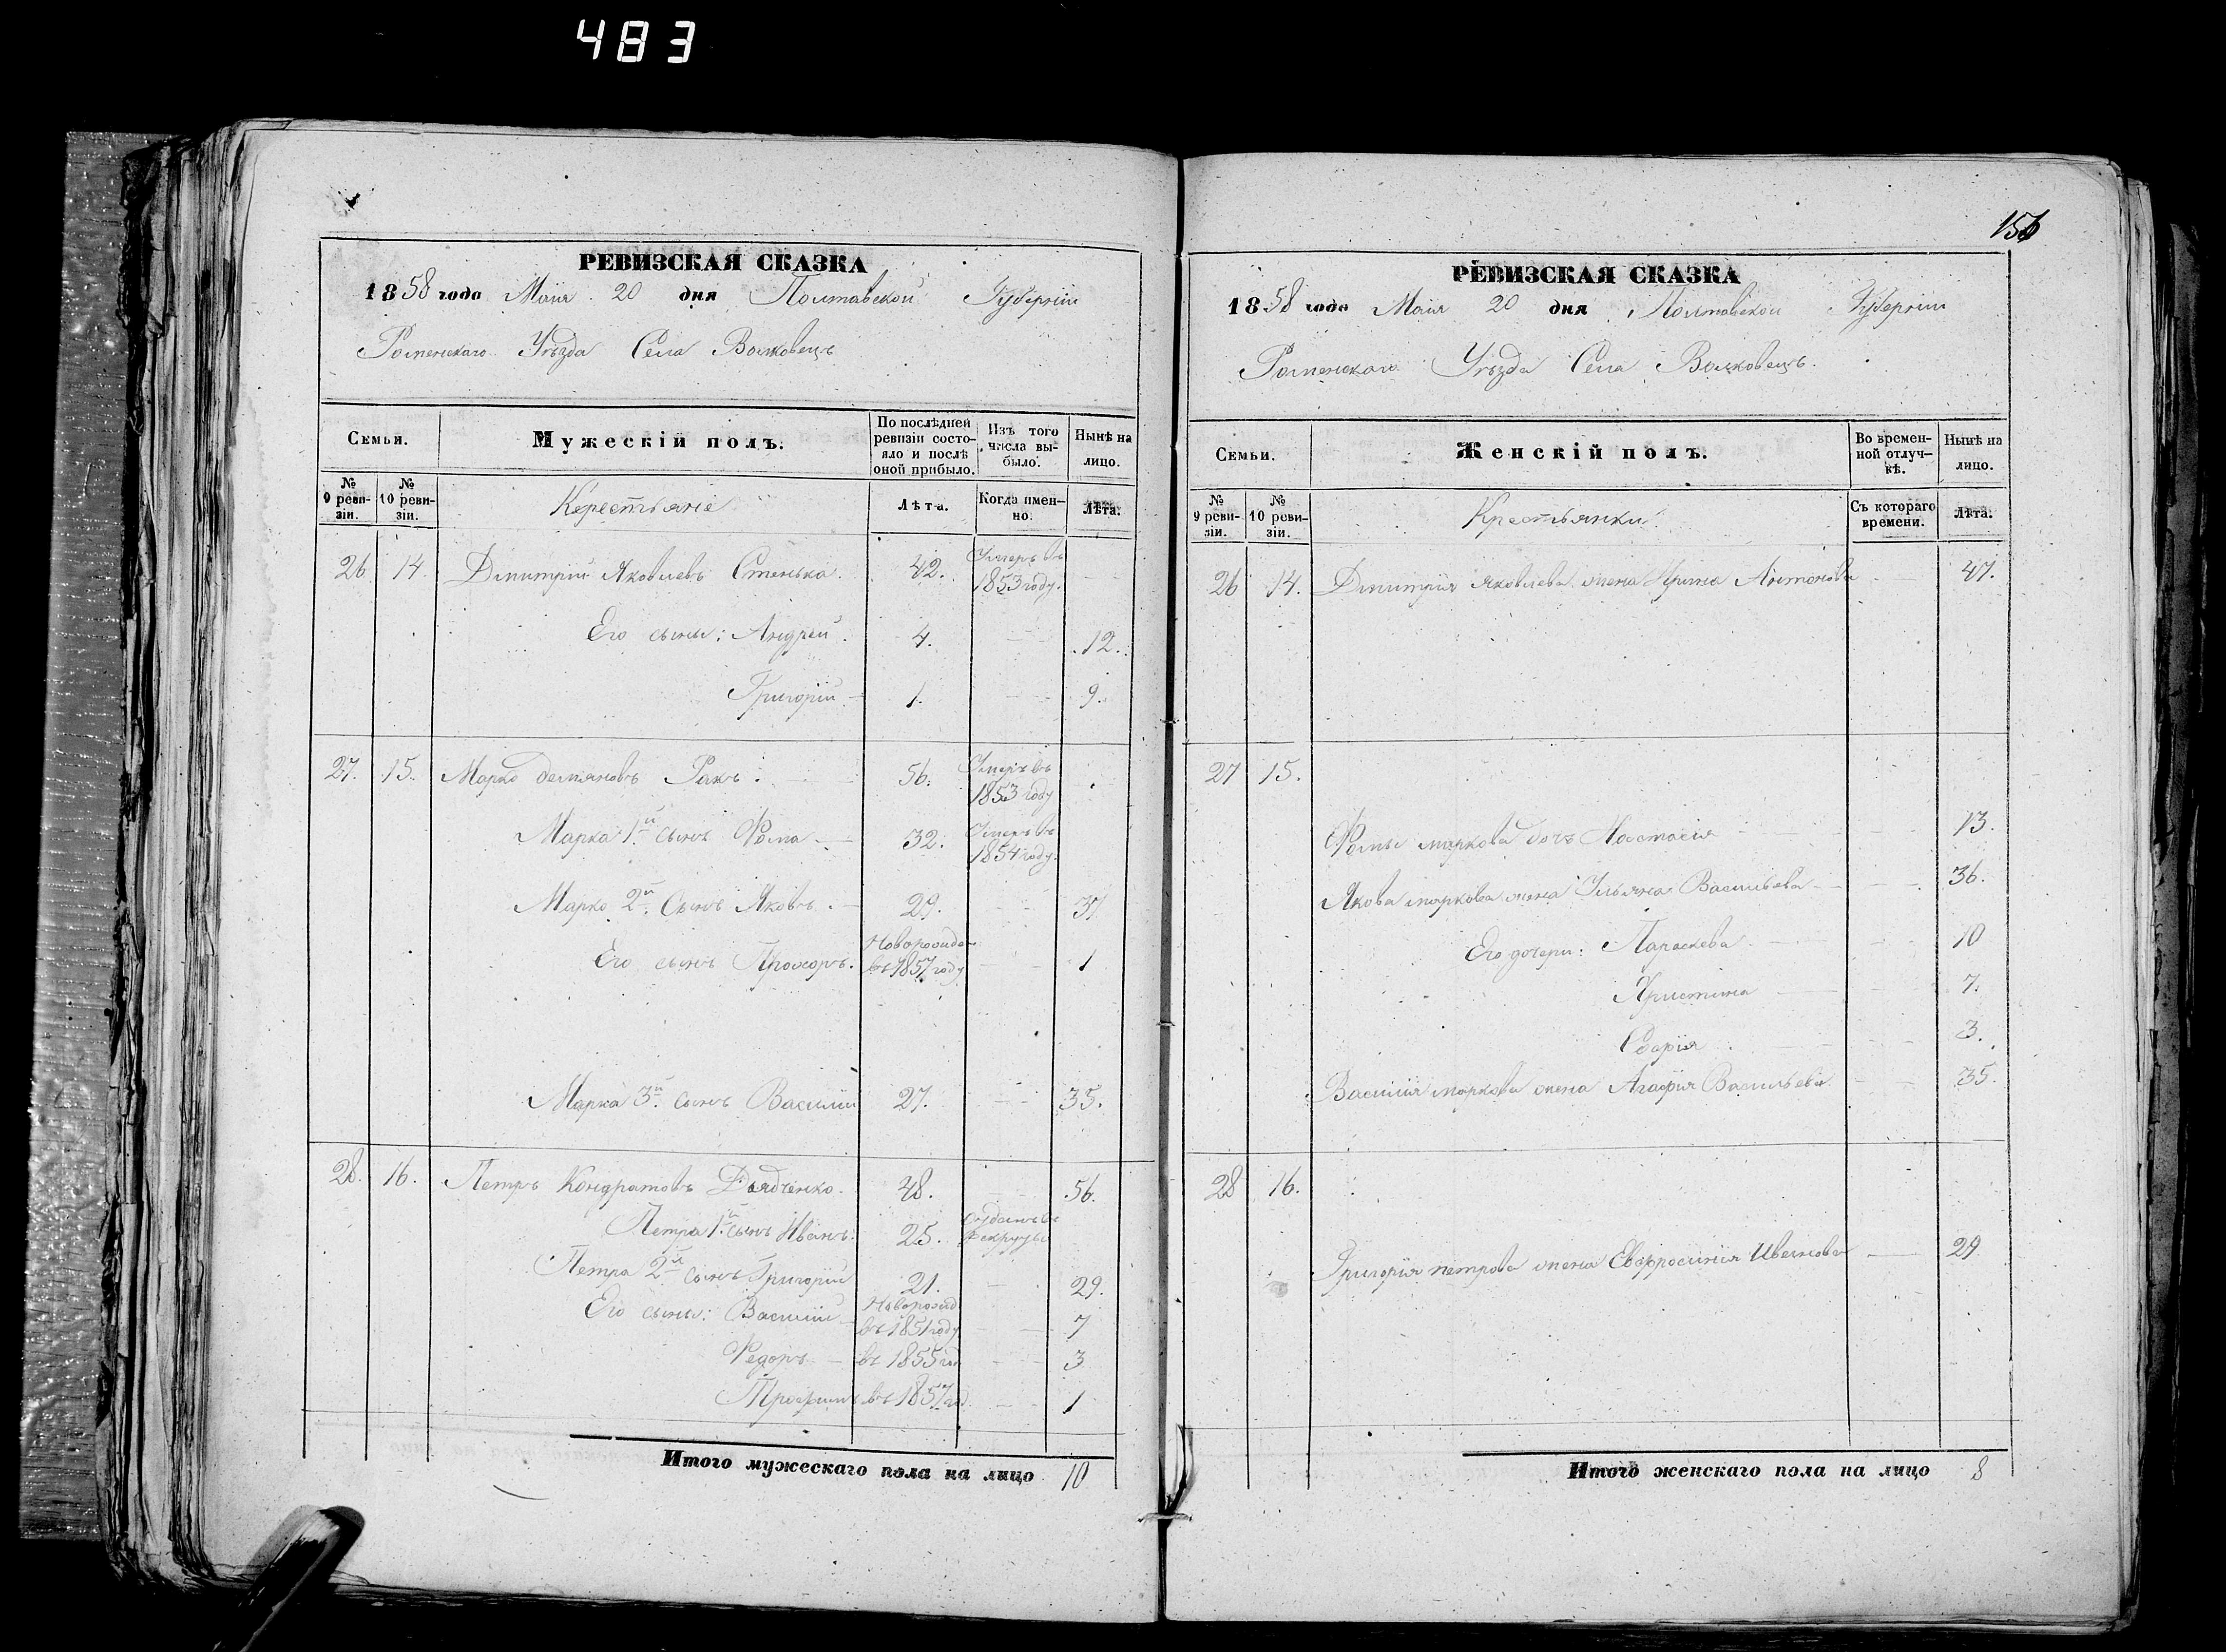 483
РЕВИЗСКАЯ СКАЗКА
1858 года Маія 20 дня Полтавской Губерніи
Роменскаго Уѣзда Села Волковецъ
Семьи.
Мужескій полъ.
По послѣдней ревизіи состояло и послѣ оной прибыло.
Изъ того числа выбыло.
Нынѣ на лицо.
№ 9 ревизіи.
№ 10 ревизіи.
Керестьяніе
Лѣта.
Когда именно.
Лѣта.
26 14. Дмитрій Яковлевъ Стенька. 42. Умеръ въ 1853 году.
Его сыны: Андрей. 4. 12.
Григорій 1. 9.
27. 15. Марко демяновъ Ракъ. 56. Умеръ въ 1853 году
Марка 1й сынъ Фома 32. Умеръ въ 1854 году.
Марко 2й Сынъ Яковъ. 29. 37
Его сынъ Прохоръ. Новорожден въ 1857 году 1
Марка 3й сынъ Василій 27. 35.
28. 16. Петръ Кондратовъ Дьядченко. 48. 56.
Петра 1й сынъ Иванъ. 25. Отданъ въ рекруты
Петра 2й сынъ Григорій 21. 29.
Его сыны: Василій Новорожд въ 1851 году 7
Федоръ въ 1855 год 3
Трофимъ въ 1857 год 1
Итого мужескаго пола на лицо 10
РЕВИЗСКАЯ СКАЗКА
1858 года Маія 20 дня Полтавской Губерніи
Роменскаго Уѣзда Села Волковецъ.
Семьи.
Женскій полъ.
Во временной отлучкѣ.
Нынѣ на лицо.
№ 9 ревизіи.
№ 10 ревизіи.
Крестьянки
Съ котораго времени.
Лѣта.
26 14. Дмитрія яковлева жена Ирина Антонова 47.
27 15.
Фомы маркова дочь Настасія 13.
Якова маркова жена Ульяна Васильева 36.
Его дочери: Параскева 10
Христина 7.
3.
Василія маркова жена Агафія Васильева 35.
28 16.
Григорія петрова жена Евфросинія Иванова 29.
Итого женскаго пола на лицо 8